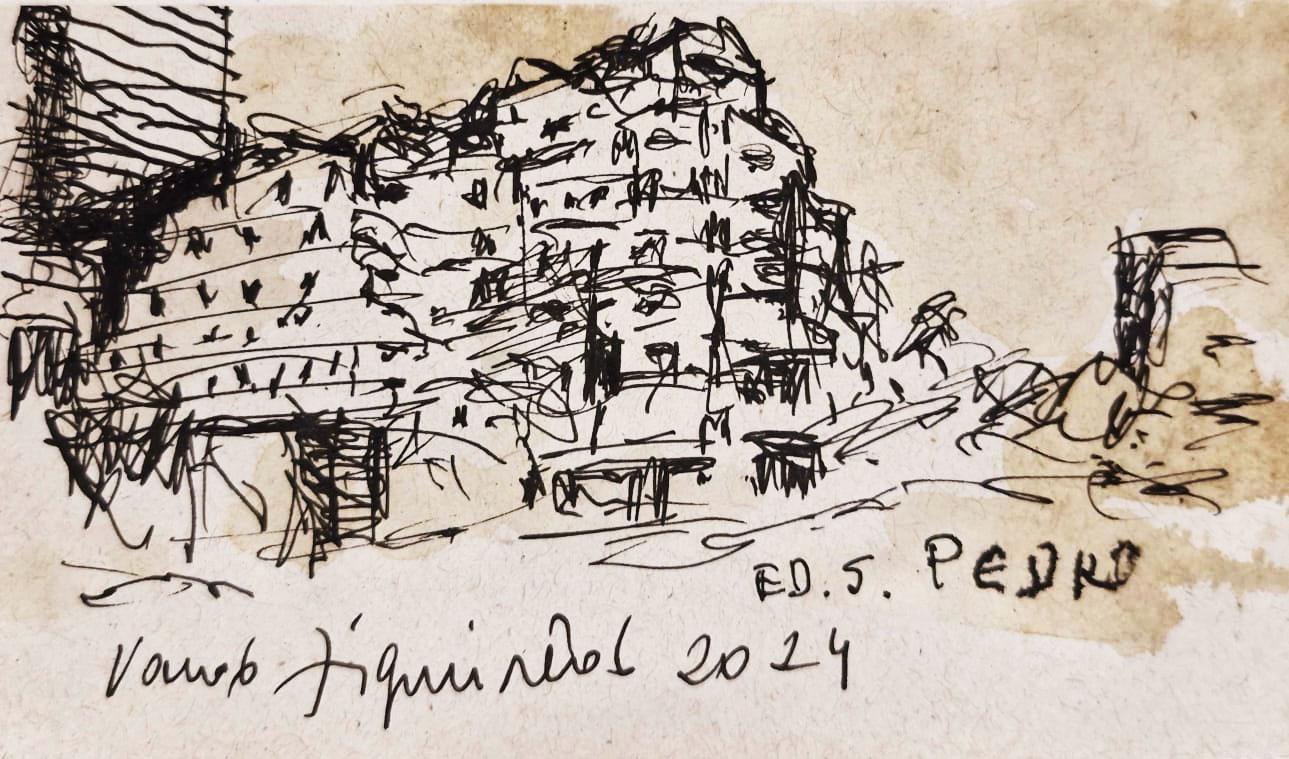 ED. S. PEDRO
Figueiredo 2024